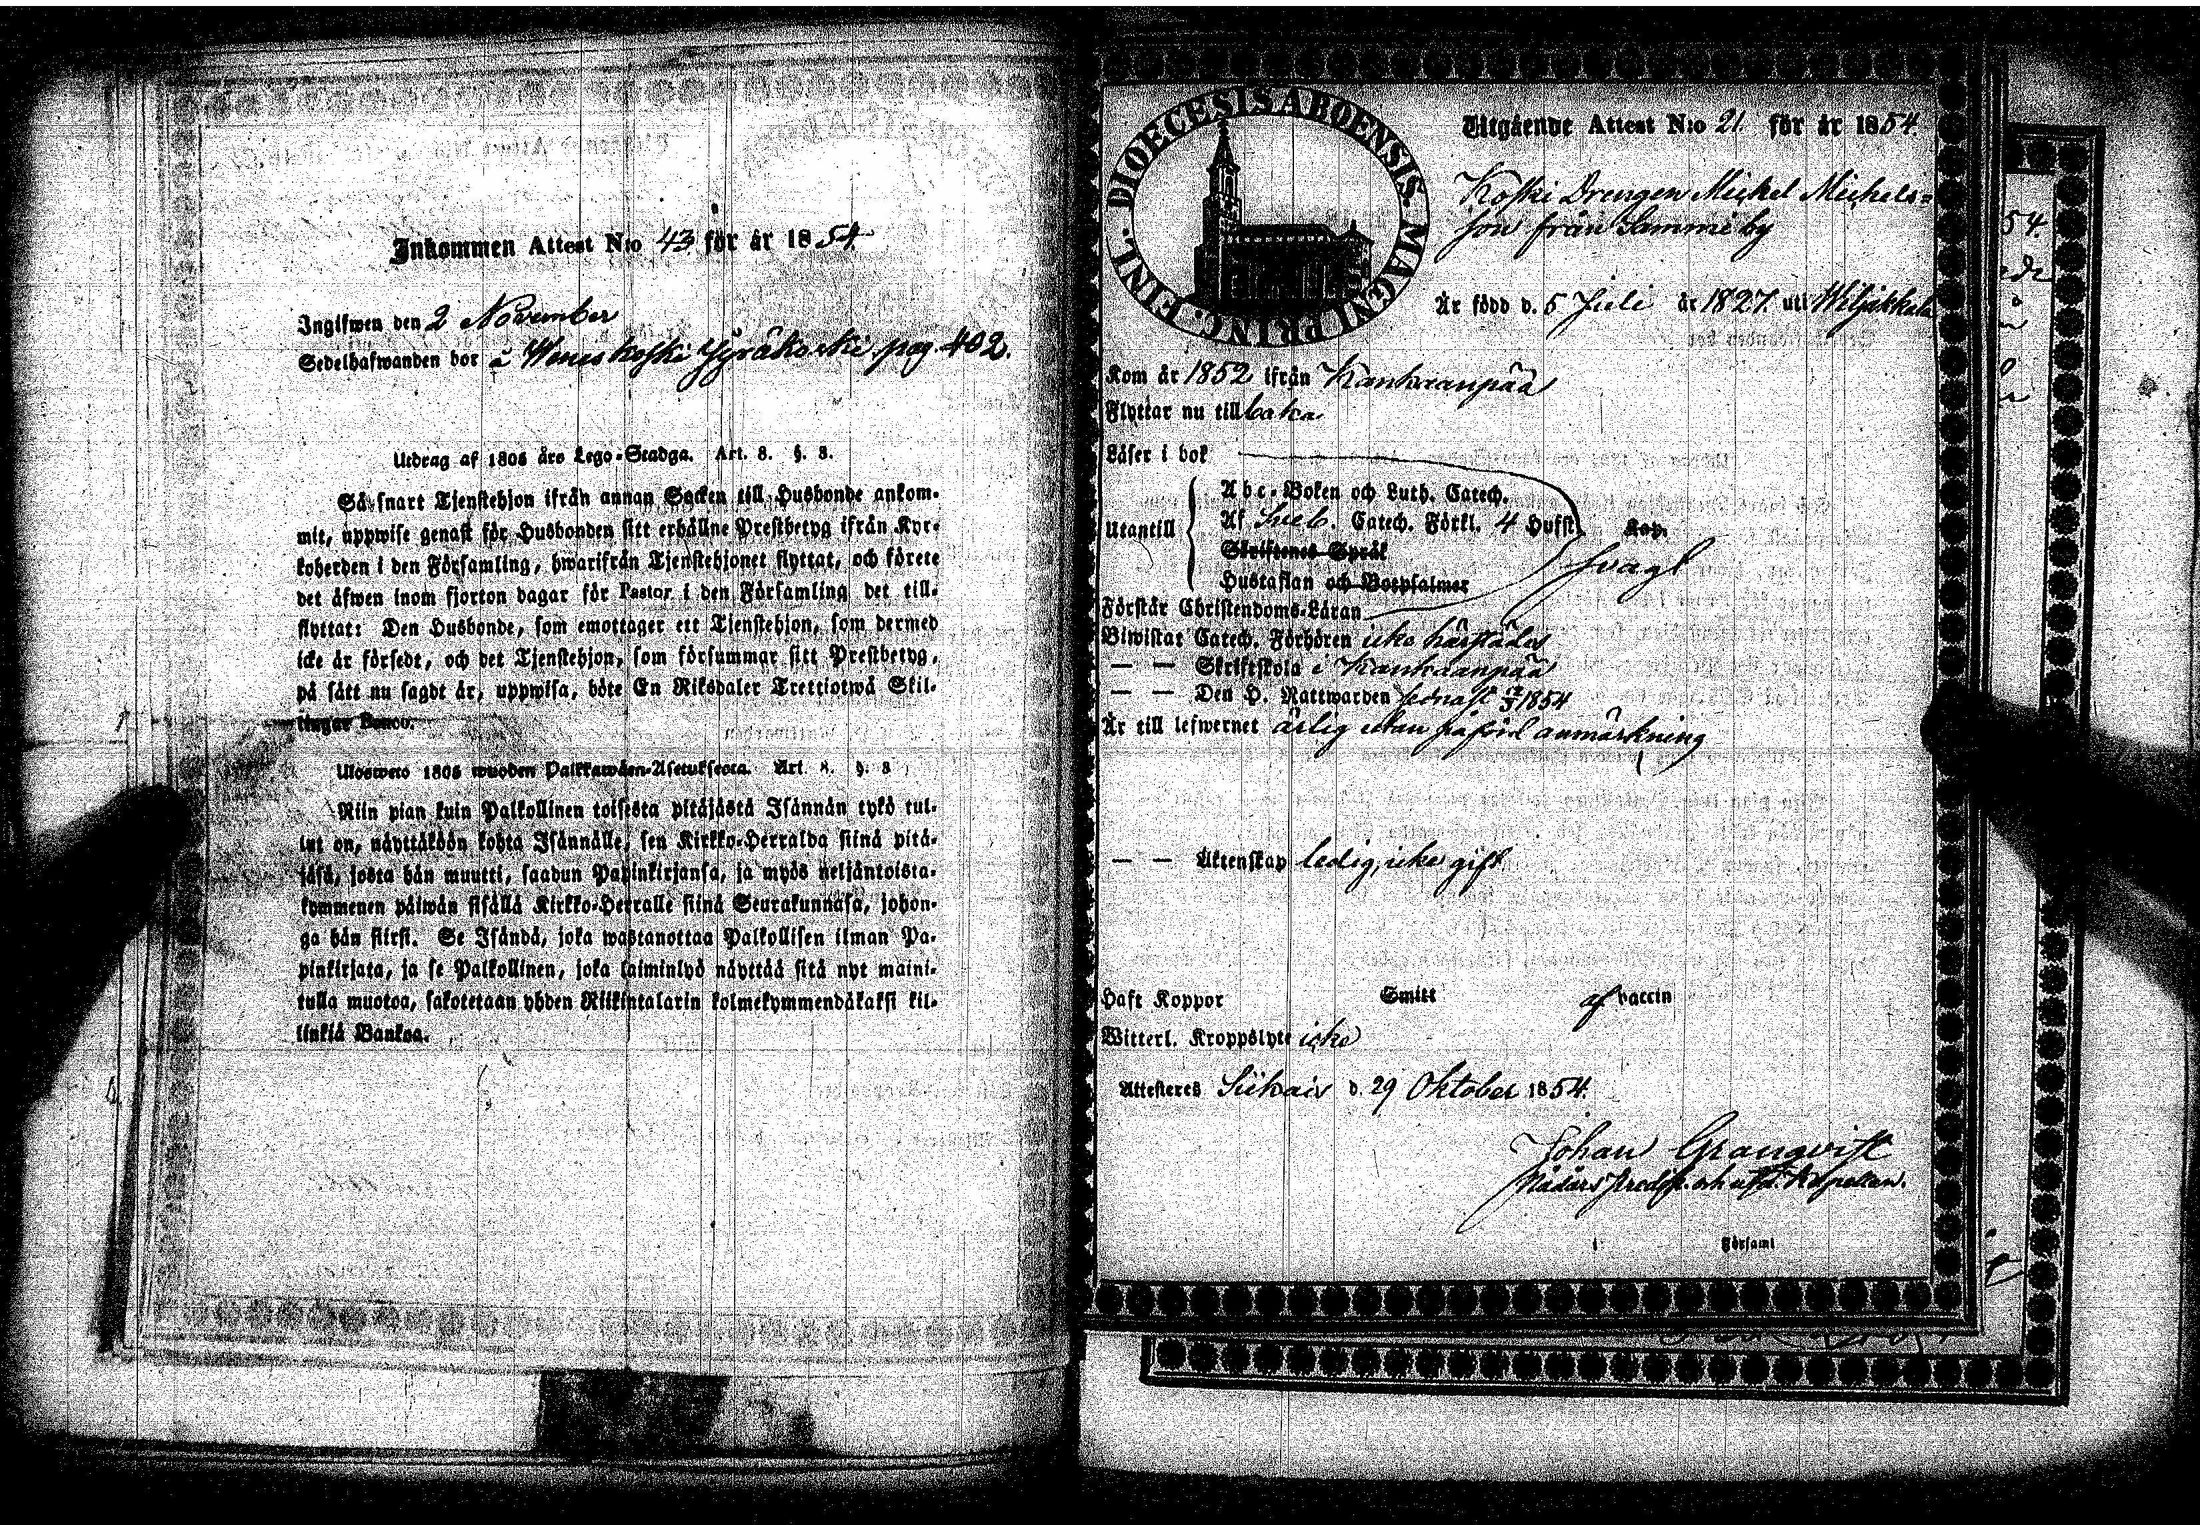 Inkommen Attest N:o 43 för år 1854
Ingifwen den 2 November
Sedelhafwanden bor å Weneskoski Jyräkoski pag. 402.
Utdrag af 1805 års Lego-Stadga. Art. 8. §. 8.
Så snart Tjenstehjon ifrån annan Socken till Husbonde ankom-
mit, uppwise genast för Husbonden sitt erhållne Prestbetyg ifrån Kyr-
koherden i den Församling, hwarifrån Tjenstehjonet flyttat, och förete
det äfwen inom fjorton dagar för Pastor i den Församling det till-
flyttat: Den Husbonde, som emottager ett Tjenstehjon, som dermed
icke är försedt, och det Tjenstehjon, som försummar sitt Prestbetyg,
på sätt nu sagdt är, uppwisa, böte En Riksdaler Trettiotwå Skil-
lingar Banco.
Ulosweto 1805 wuoden Palkkawäen-Asetuksesta. Art. 8. §. 8
Niin pian kuin Palkollinen toisesta pitäjästä Isännän tykö tul-
lut on, näyttäköön kohta Isännälle, sen Kirkko-Herralda siinä pitä-
jäsä, josta hän muutti, saadun Papinkirjansa, ja myös neljäntoista-
kymmenen päiwän sisällä Kirkko-Herralle siinä Seurakunnasa, johon-
ga hän siirsi. Se Isändä, joka wastanottaa Palkollisen ilman Pa-
pinkirjata, ja se Palkollinen, joka laiminlyö näyttää sitä nyt maini-
tulla muotoa, sakotetaan yhden Riikintalarin kolmekymmendäkaksi kil-
linkiä Bankoa.
DIOECESIS ABOENSIS. MAGNI PRINC. FINL.
Utgående Attest N:o 21. för år 1854.
Koski Drengen Mickel Michels=
son från Sammi by
Är född d. 5 Juli år 1827. uti Wiljakkala
Kom år 1852 ifrån Kankaanpää
Flyttar nu tillbaka
Läser i bok
Abc-Boken och Luth. Catech.
Utantill Af Sveb. Catech. Förkl. 4 Hufst. Kap.
Skriftenes Språk
svagt
Hustaflan och Botpsalmer
Förstår Christendoms-Läran
Biwistat Catech. Förhören icke härstädes
— — Skriftskola i Kankaanpää
— — Den H. Nattwarden 1854
Är till lefwernet ärlig utan påförd anmärkning
— — Äktenskap ledig, icke gift.
Haft Koppor Smitt af vaccin
Witterl. Kroppslyte icke
Attesteres Siikais d. 29 Oktober 1854.
Johan Granqvist
Nådårs predik. och Kapellan.
i Församl